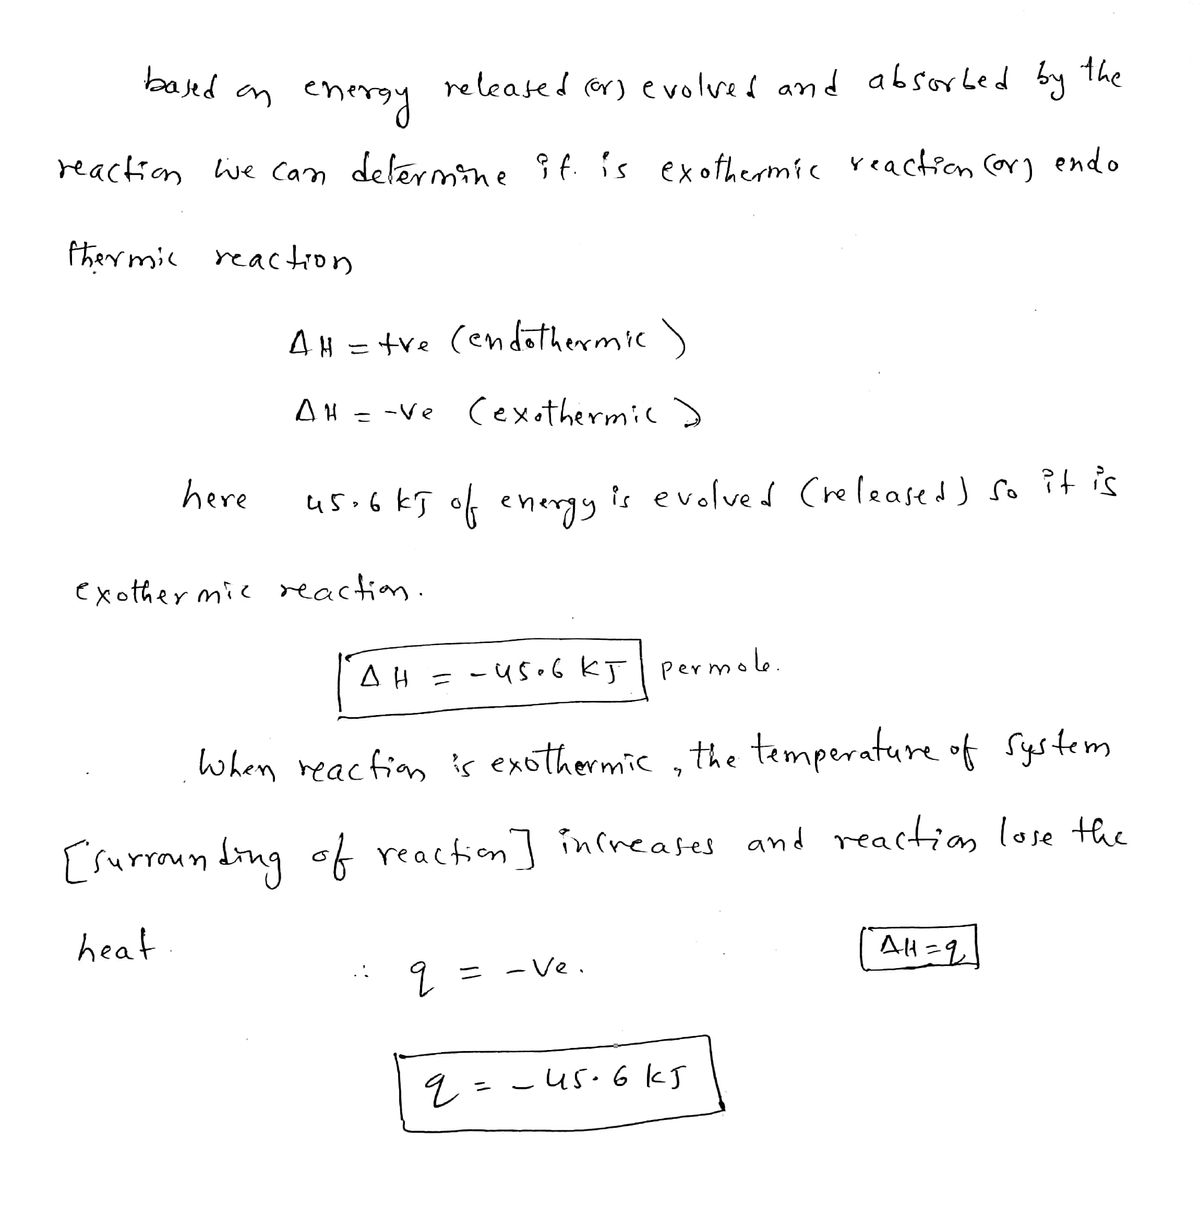 based on energy released (or) evolved and absorbed by the
reaction we can determine it is exothermic reaction (or) endo
thermic reaction
ΔH = +ve (endothermic)
ΔH = -ve (exothermic)
here 45.6 kJ of energy is evolved (released) so it is
exothermic reaction.
ΔH = -45.6 kJ permole.
When reaction is exothermic, the temperature of system
[surrounding of reaction] increases and reaction lose the
heat.
∴ q = -ve.
ΔH = q
q = -45.6 kJ